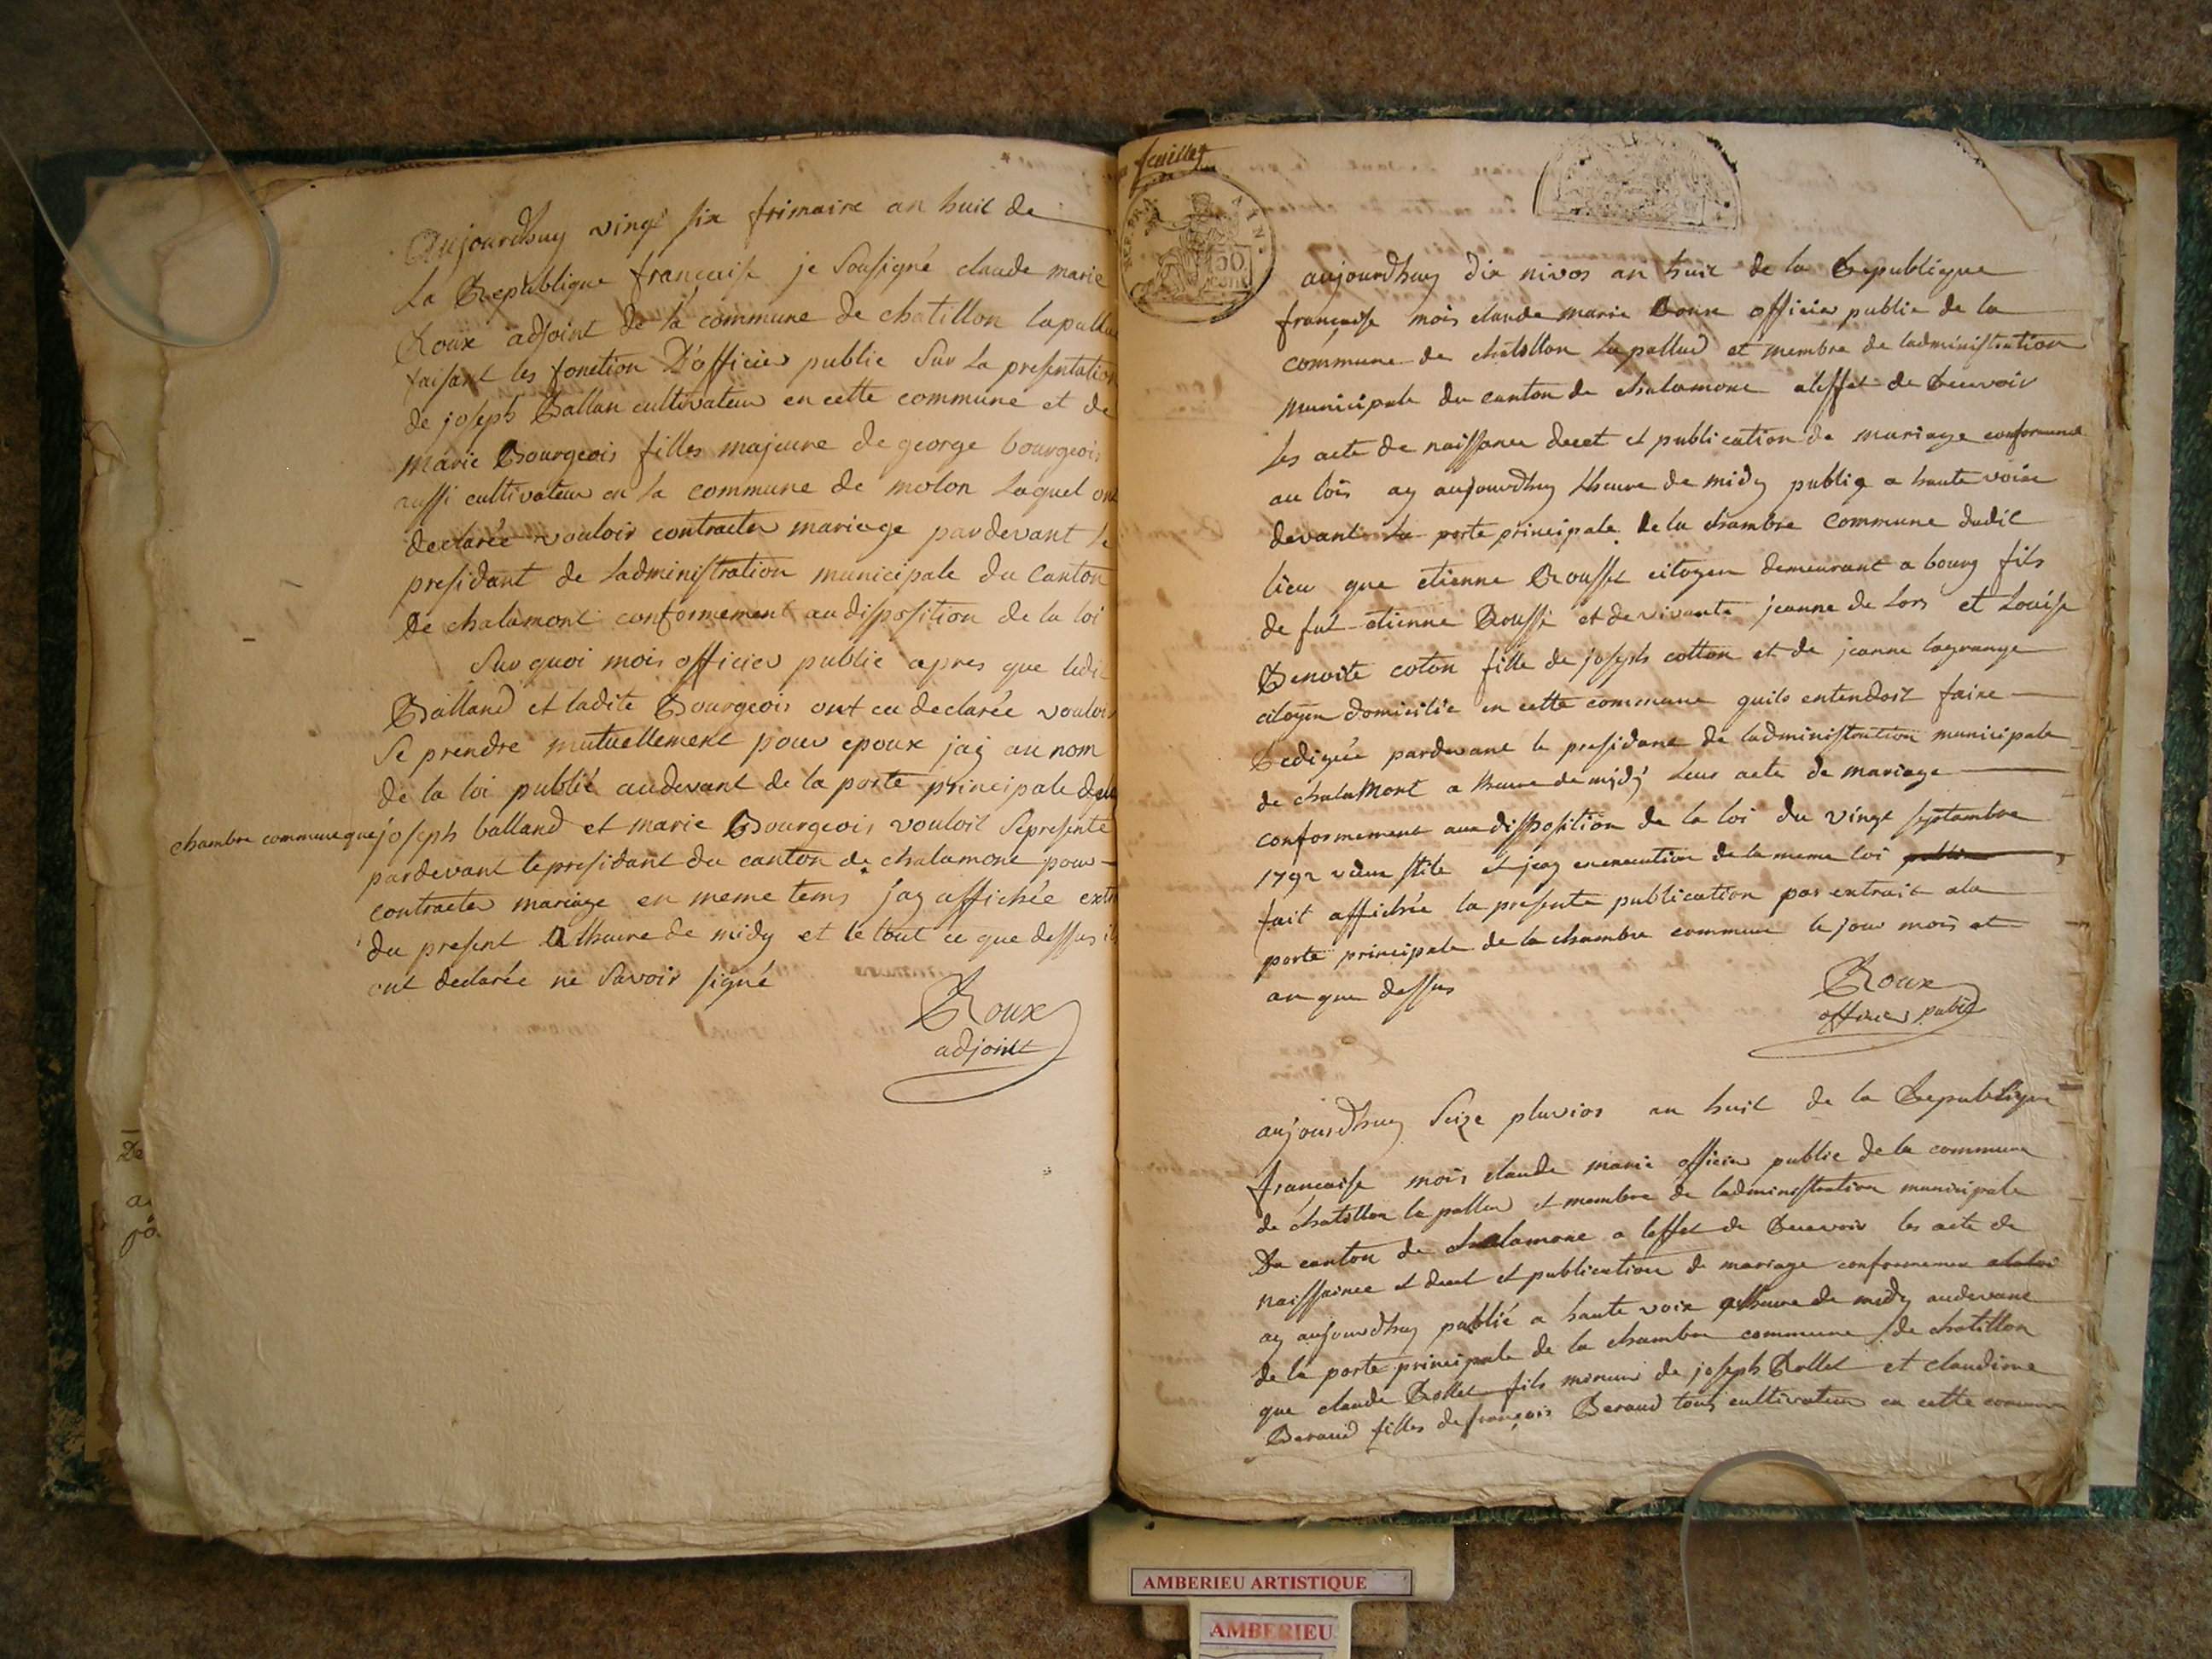 Aujourdhuy vingt six frimaire an huit de
La Republique francaise je Sousigné claude marie
Roux adjoint de la commune de chatillon lapallu
faisant les fonction D'officier public Sur La presentation
de joseph Ballan cultivateur en cette commune et de
marie Bourgeois filles majeure de george bourgeois
aussi cultivateur en la commune de molon Laquel ont
declarée vouloir contracter mariage pardevant le
presidant de Ladministration municipale du Canton
de chalamont conformement au disposition de la loi
Sur quoi mois officier public apres que ledit
Balland et ladite Bourgeois ont eu declarée vouloir
Se prendre mutuellement pour epoux jay au nom
de la loi publié audevant de la porte principale dela
chambre commune que joseph balland et marie Bourgeois vouloit Sepresenté
pardevant le presidant du canton de chalamont pour
contracter mariage en meme tems jay affichée extr
du present a lheure de midy et le tout ce que dessus ils
ont declarée ne Savoir signé
Roux
adjoint
feuillet
REP. FRA
50
CENT
aujourdhuy dix nivos an huit de la Republique
françaisse mois claude marie Roux officier public de la
commune de chatillon la pallud et membre de ladministration
municipale du canton de chalamont aleffet de Recevoir
les acte de naissance decet et publication de mariage conformement
au lois ay aujourdhuy Lheure de midy publiq a haute voix
devant la porte principale de la chambre commune dudit
lieu que etienne Rousset citoyen demeurant a bourg fils
de fut etienne Rousse et de vivante jeanne de Lors et Louise
Benoite coton fille de joseph cotton et de jeanne lagrange
citoyen domicilié en cette commune quils entendoit faire
Redigée pardevant le presidant de ladministration municipale
de chalaMont a lheure de midy leur acte de mariage
conformement aux disposition de la loi du vingt septembre
1792 vieux stile et jay en execution de la meme loi
fait affichée la presente publication par extrait ala
porte principale de la chambre commune le jour mois et
an que dessus
Roux
officier public
aujourdhuy Seize pluvios an huit de la Republique
francaise mois claude marie officier public de la commune
de chatillon la pallud et membre de ladministration municipale
Du canton de chalamont a leffet de Recevoir les acte de
naissance et decet et publication de mariage conformement alaloi
ay aujourdhuy publié a haute voix a lheure de midy audevant
de la porte principale de la chambre commune de chatillon
que claude Rollet fils mineur de joseph Rollet et claudine
Beraud filles de françois Beraud tous cultivateur en cette commune
AMBERIEU ARTISTIQUE
AMBERIEU